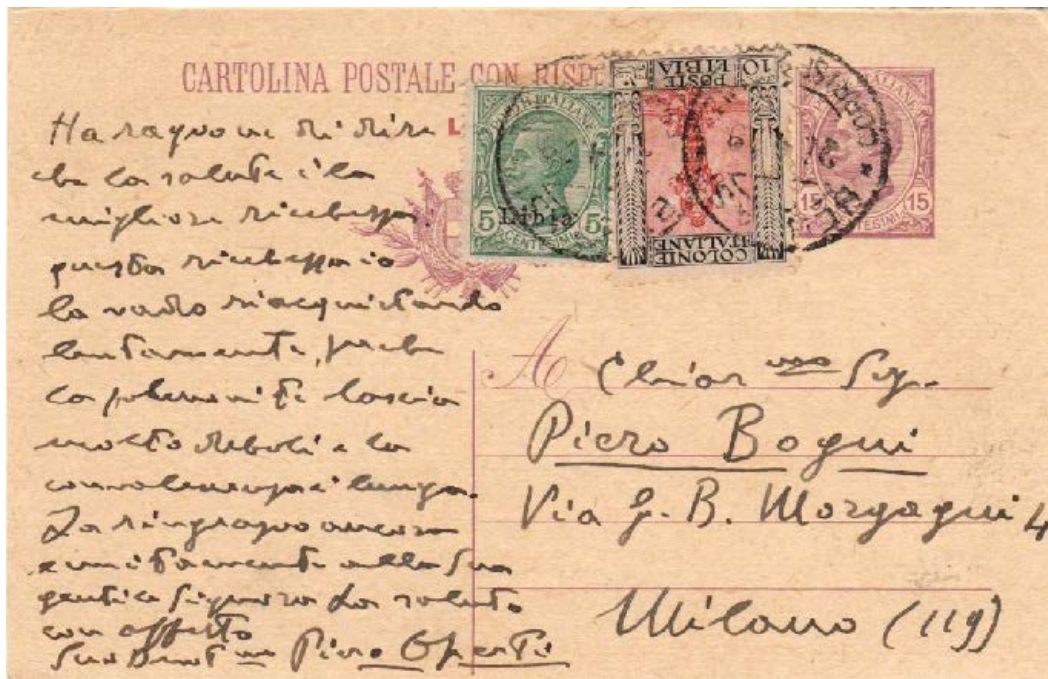 CARTOLINA POSTALE CON RISP
Ha ragione di dire
che la salute è la
migliore ricchezza:
questa ricchezza io
la vado riacquistando
lentamente, perché
la polmonite lascia
molto deboli e la
convalescenza è lunga.
La ringrazio ancora
e unitamente alla Sua
gentile Signora La saluto
con affetto
Suo Piero Operti
5 Libia 5
CENTESIMI
POSTE
LIBIA
10
COLONIE
ITALIANE
15 15
CENTESIMI
A Chiar mo Sig.
Piero Bogni
Via G. B. Morgagni 4
Milano (119)